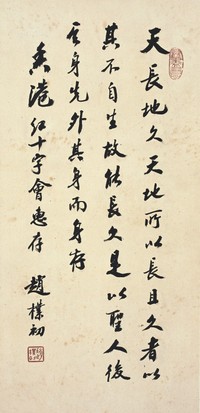 天長地久天地所以長且久者以
其不自生故能長久是以聖人後
其身而身先外其身而身存
香港紅十字會惠存
趙樸初